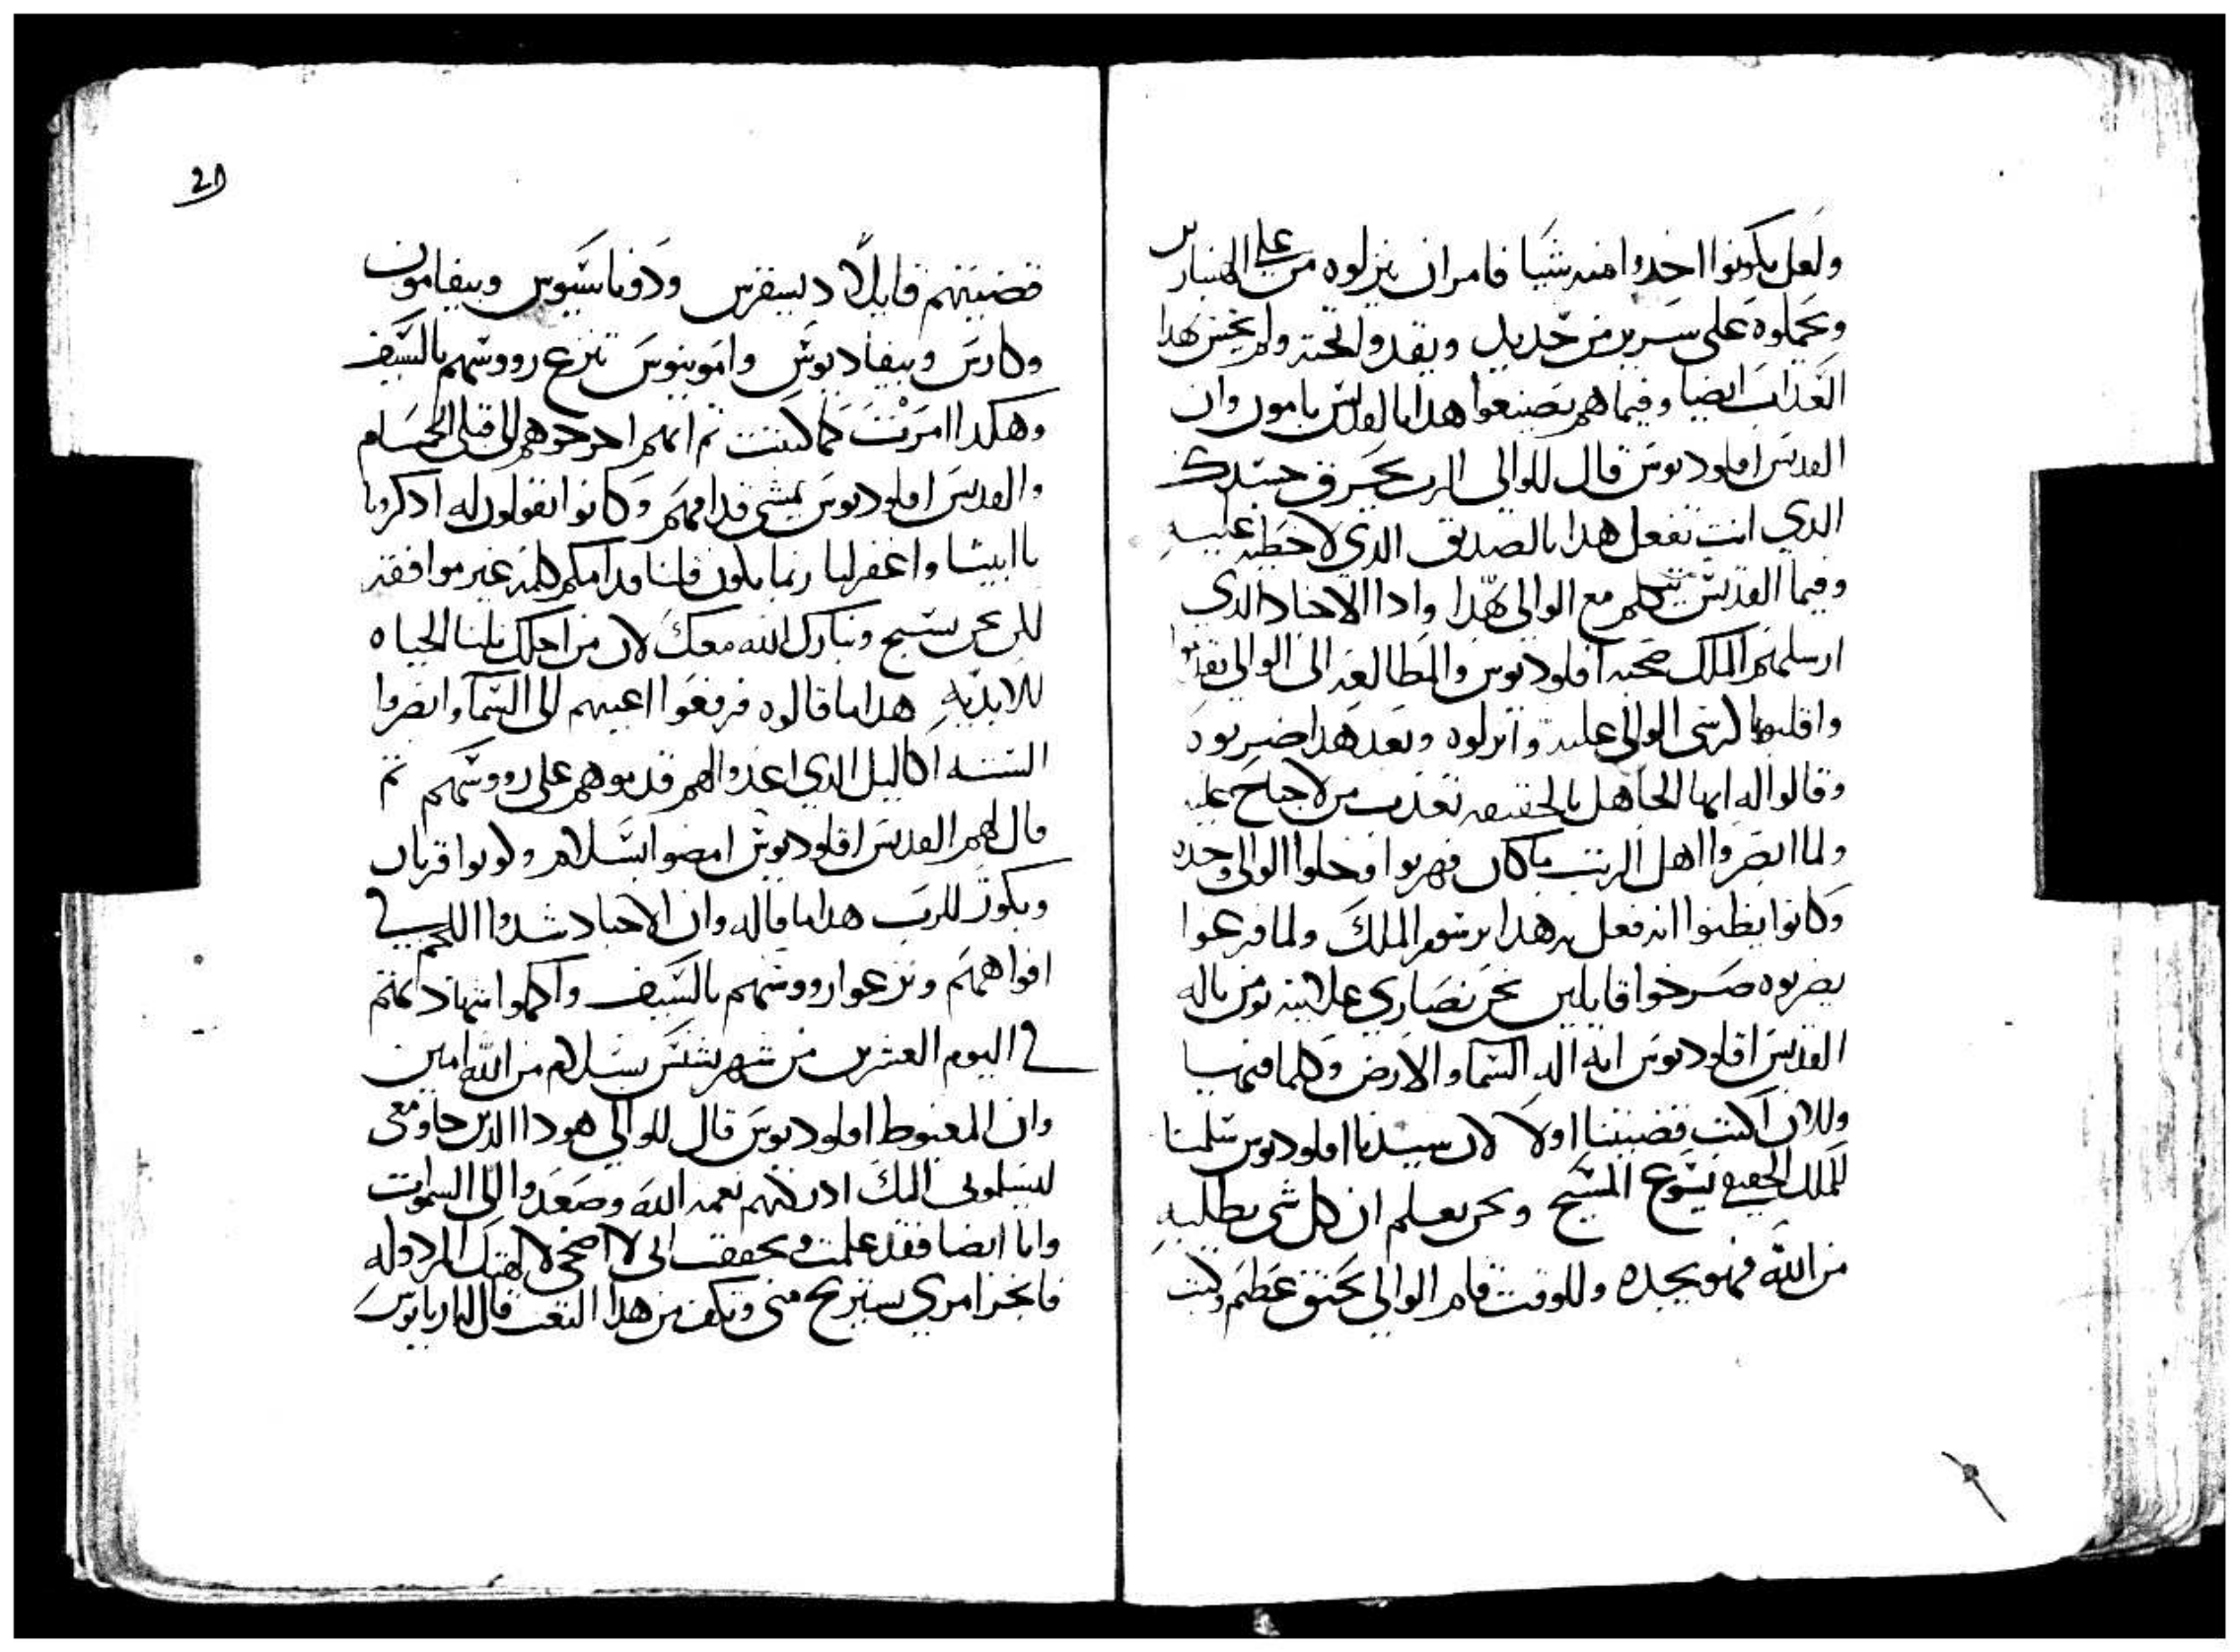 ولعل يكونوا اخدوا منه شيا فامر ان ينزلوه من على الهنبارين
ويحملوه على سرير من حديد ويقدوا تحته ولم يحس بهدا
العداب ايضا وفيما هم يصنعوا هدا بالقديس بامون وان
القديس اقلوديوس قال للوالي الرب يحرق جسدك
الدي انت تفعل هدا بالصديق الدي لا خطيه عليه
وفيما القديس يتكلم مع الوالي بهدا وادا الاجناد الدي
ارسلهم الملك صحبة اقلوديوس والمطالعه الى الوالي تقدموا
واقلبوا كرسي الوالي عليه وانزلوه وبعد هدا ضربوه
وقالوا له ايها الجاهل بالحقيقه تعدب من لا جناح عليه
ولما ابصروا اهل الريب ما كان فهربوا وخلوا الوالي وحده
وكانوا يظنوا انه فعل به هدا برسم الملك ولما فرغوا
يضربوه صرخوا قايلين نحن نصارى علانيه نومن باله
القديس اقلوديوس انه اله السما والارض وكلما فيها
وللان اكتب قضيتنا اولا لان سيدنا اقلوديوس سلمنا
للملك الحقيقي يسوع المسيح ونحن نعلم ان كل شي يطلبه
من الله فهو يجده وللوقت قام الوالي بحنق عظيم وكتب
21
قضيتهم قايلا ديسقرس ودوناسيوس وبيفامون
وكارس وبيفاديوس وامونيوس تنزع رووسهم بالسيف
وهكدا امرت كما كتبت تم انهم اخرجوهم الى قبلي الحمام
والقديس اقلوديوس يمشي قدامهم وكانوا يقولون له ادكرنا
يا ابينا واغفر لنا ربما يكون قلنا قدامكم كلمه غير موافقه
لكن نحن نسبح ونبارك الله معك لان من اجلك نلنا الحياه
الابديه هدا ما قالوه فرفعوا اعينهم الى السما وابصروا
الستة اكاليل الدي اعدوا لهم قد بوهم على رووسهم تم
قال لهم القديس اقلوديوس امضوا بسلام وكونوا قربان
وبكور للرب هدا ما قاله وان الاجناد شدوا اللجم في
افواههم ونزعوا رووسهم بالسيف واكملوا شهادتهم
في اليوم العشرين من شهر بشنس بسلام من الله امين
وان المغبوط اقلوديوس قال للوالي هودا الدين جاو معي
ليسلوني اليك ادركتهم نعمة الله وصعدوا الى السموات
وانا ايضا فقد علمت وتحققت اني لا اضحي لالهتك المردوله
فانجز امري ستريح مني وتكف من هدا التعب قال له اريانوس